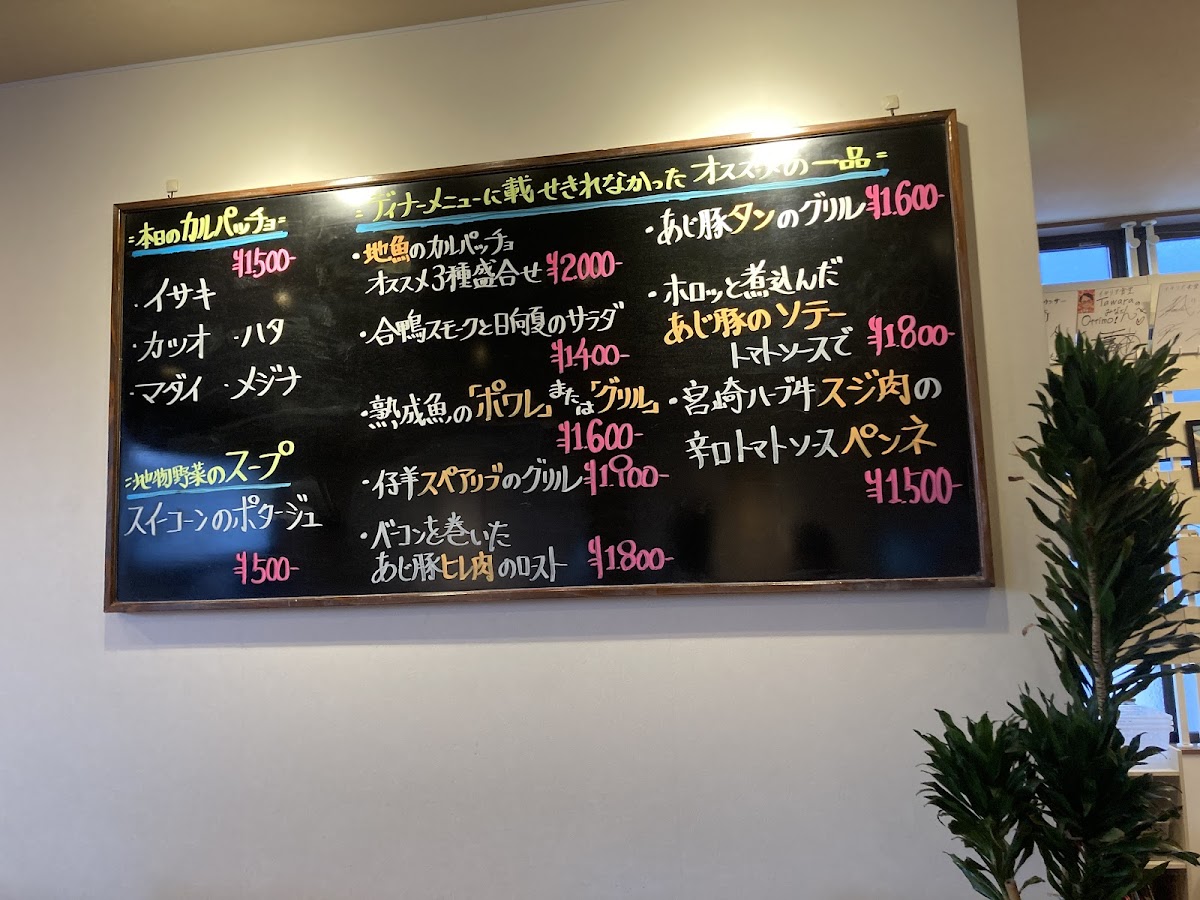 =本日のカルパッチョ=
¥1500-
・イサキ
・カツオ ・ハタ
・マダイ ・メジナ
=地物野菜のスープ
スイーコーンのポタージュ
¥500-
=ディナーメニューに載せきれなかったオススメの一品=
・地魚のカルパッチョ
オススメ3種盛合せ ¥2.000-
・合鴨スモークと日向夏のサラダ
¥1400-
・熟成魚の「ポワレ」または「グリル」
¥1.600-
・仔羊スペアリブのグリル ¥1.900-
・ベーコンを巻いた
あじ豚ヒレ肉のロスト ¥1.800-
・あじ豚タンのグリル ¥1.600-
・ホロッと煮込んだ
あじ豚のソテー
トマトソースで ¥1.800-
・宮崎ハーブ牛スジ肉の
辛口トマトソースペンネ
¥1.500-
Tawara